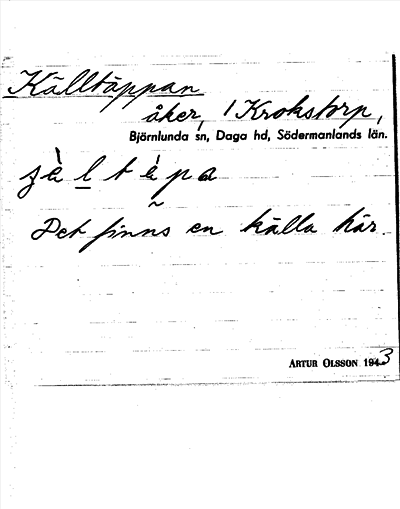 Källtäppan
åker, 1 Krokstorp,
Björnlunda sn, Daga hd, Södermanlands län.
Det finns en källa här.
ARTUR OLSSON 1943